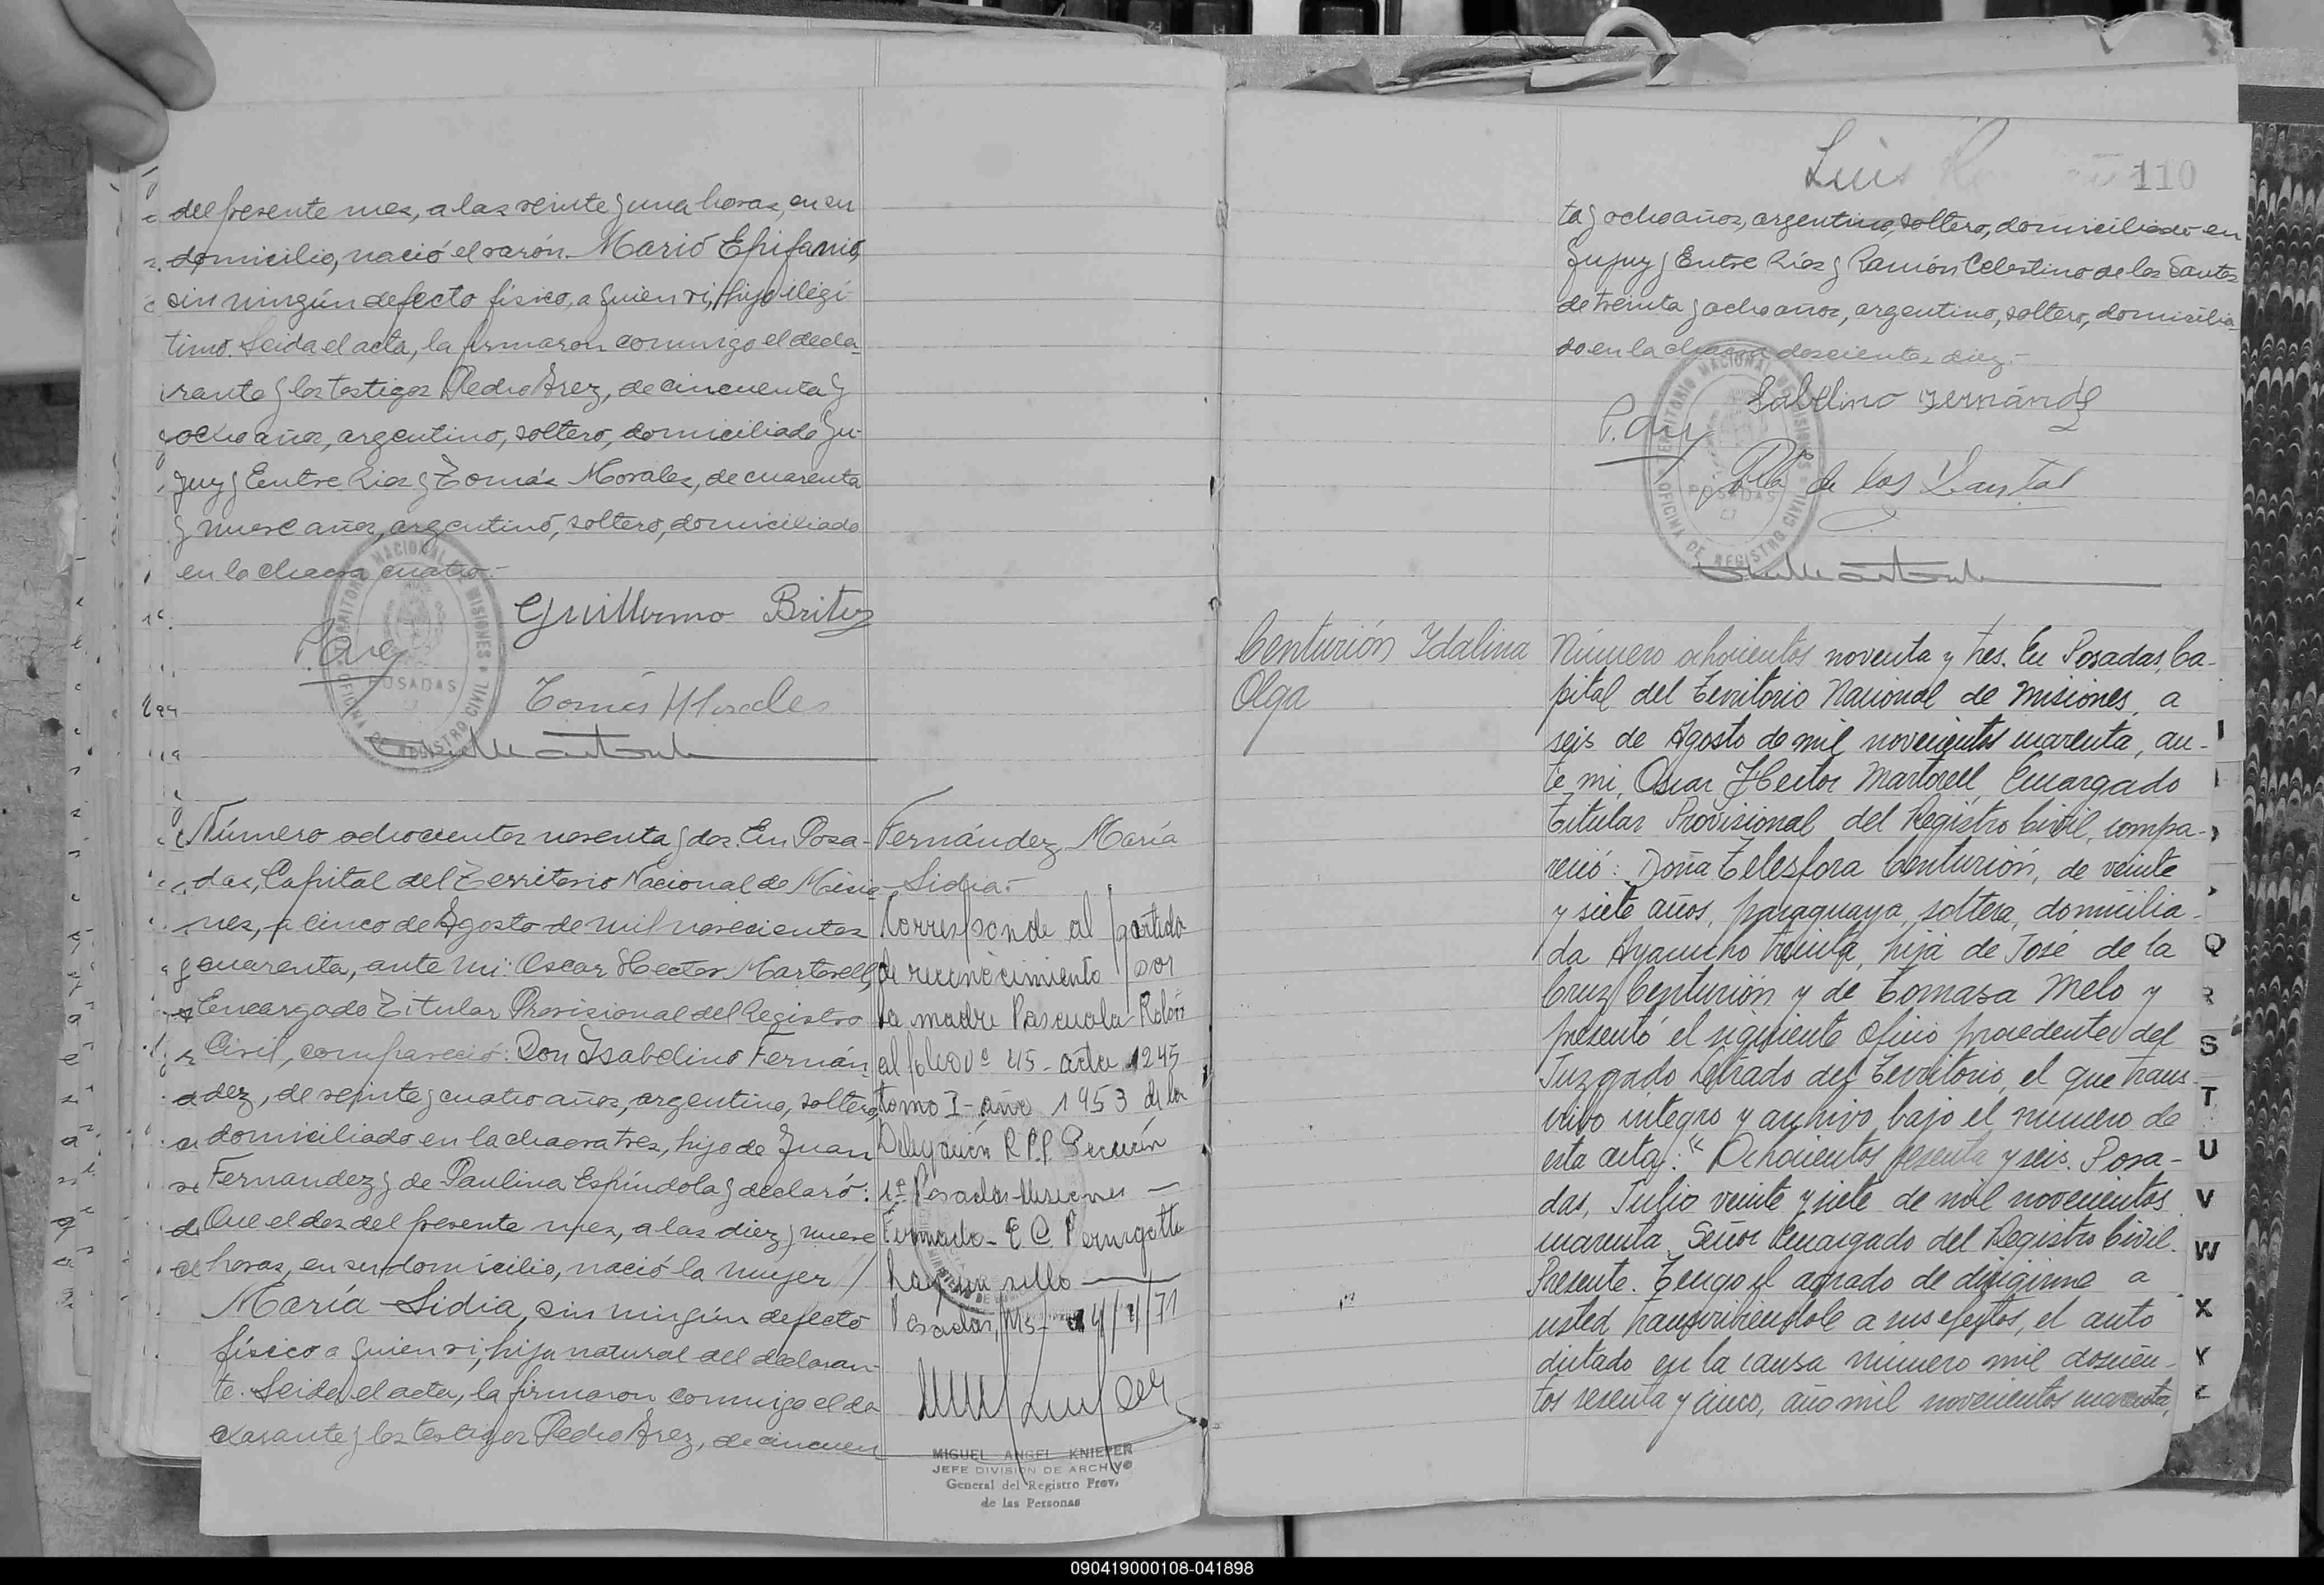 del presente mes, a las veinte y una horas, en su
domicilio, nació el varón Mario Epifanio,
sin ningún defecto físico, a quien vi, hijo ilegí-
timo. Leida el acta, la firmaron conmigo el decla-
rante y los testigos Pedro Arez, de cincuenta y
ocho años, argentino, soltero, domiciliado Ju-
juy y Entre Rios y Tomás Morales, de cuarenta
y nueve años, argentino, soltero, domiciliado
en la chacra cuatro.-
Guillermo Britez
Tomás Morales
TERRITORIO NACIONAL DE MISIONES
POSADAS
OFICINA DE REGISTRO CIVIL
Número ochocientos noventa y dos. En Posa-
das, Capital del Territorio Nacional de Misio-
nes, a cinco de Agosto de mil novecientos
cuarenta, ante mi: Oscar Hector Martorell,
Encargado Titular Provisional del Registro
Civil, compareció: Don Isabelino Fernán-
dez, de veinte y cuatro años, argentino, soltero,
domiciliado en la chacra tres, hijo de Juan
Fernandez y de Paulina Espíndola y declaró:
Que el dos del presente mes, a las diez y nueve
horas, en su domicilio, nació la mujer /
María Lidia, sin ningún defecto
físico a quien vi, hija natural del declaran-
te. Leida el acta, la firmaron conmigo el de
clarante y los testigos Pedro Arez, de cincuen
Fernández, María
Lidia.-
Corresponde al partida
de reconocimiento por
la madre Pascuala Rolón
al folio vº 45 - acta 1245
tomo I - año 1953 de la
Delegación R.P.P. Sección
1ª Posadas-Misiones —
Firmado - E. C.
hay un sello —
Posadas, Ms-
MIGUEL ANGEL KNIEPER
JEFE DIVISION DE ARCHIVO
General del Registro Prov.
de las Personas
Luis
110
ta y ocho años, argentino, soltero, domiciliado en
Jujuy y Entre Ríos y Ramón Celestino de los Santos
de treinta y ocho años, argentino, soltero, domicilia-
do en la chacra doscientos diez.-
TERRITORIO NACIONAL DE MISIONES
POSADAS
OFICINA DE REGISTRO CIVIL
Sabelino Fernández
de los Santos
Centurión Idalina
Olga
Número ochocientos noventa y tres. En Posadas, Ca-
pital del Territorio Nacional de Misiones, a
seis de Agosto de mil novecientos cuarenta, an-
te mi, Oscar Hector Martorell, Encargado
Titular Provisional del Registro Civil, compa-
reció: Doña Telesfora Centurión, de veinte
y siete años, paraguaya, soltera, domicilia-
da Ayacucho treinta, hija de José de la
Cruz Centurión y de Tomasa Melo y
presentó el siguiente oficio procedente del
Juzgado Letrado del Territorio, el que trans-
cribo integro y archivo bajo el número de
esta acta: "Ochocientos sesenta y seis. Posa-
das, Julio veinte y siete de mil novecientos
cuarenta. Señor Encargado del Registro Civil.
Presente. Tengo el agrado de dirigirme a
usted transcribiendole a sus efectos, el auto
dictado en la causa número mil doscien-
tos sesenta y cinco, año mil novecientos cuarenta,
Q
R
S
T
U
V
W
X
Y
Z
090419000108-041898